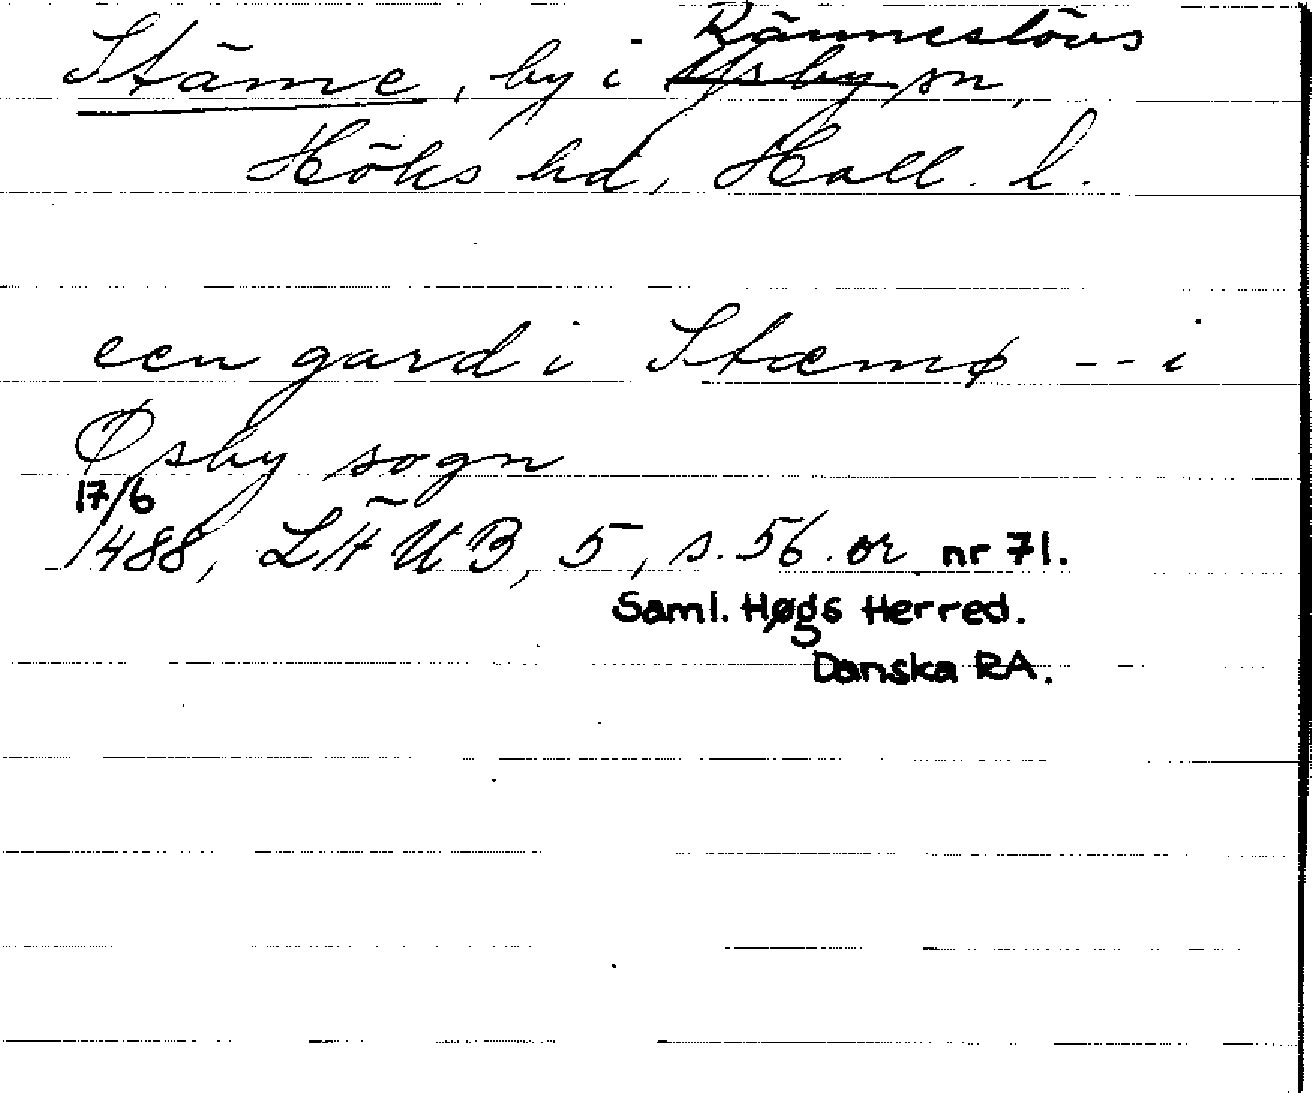 Ränneslövs
Stäme, by i Ysby sn,
Höks hd, Hall. l.
een gard i Stæmø -- i
Øsby sogn
17/6
1488, LÄUB, 5, s. 56. or nr 71.
Saml. Høgs Herred.
Danska RA.